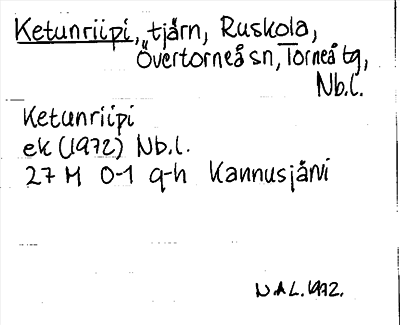 Ketunriipi, tjärn, Ruskola,
Övertorneå sn, Torneå tg,
Nb.l.
Ketunriipi
ek (1972) Nb.l.
27 M 0-1 g-h Kannusjärvi
N.A.L. 1972.